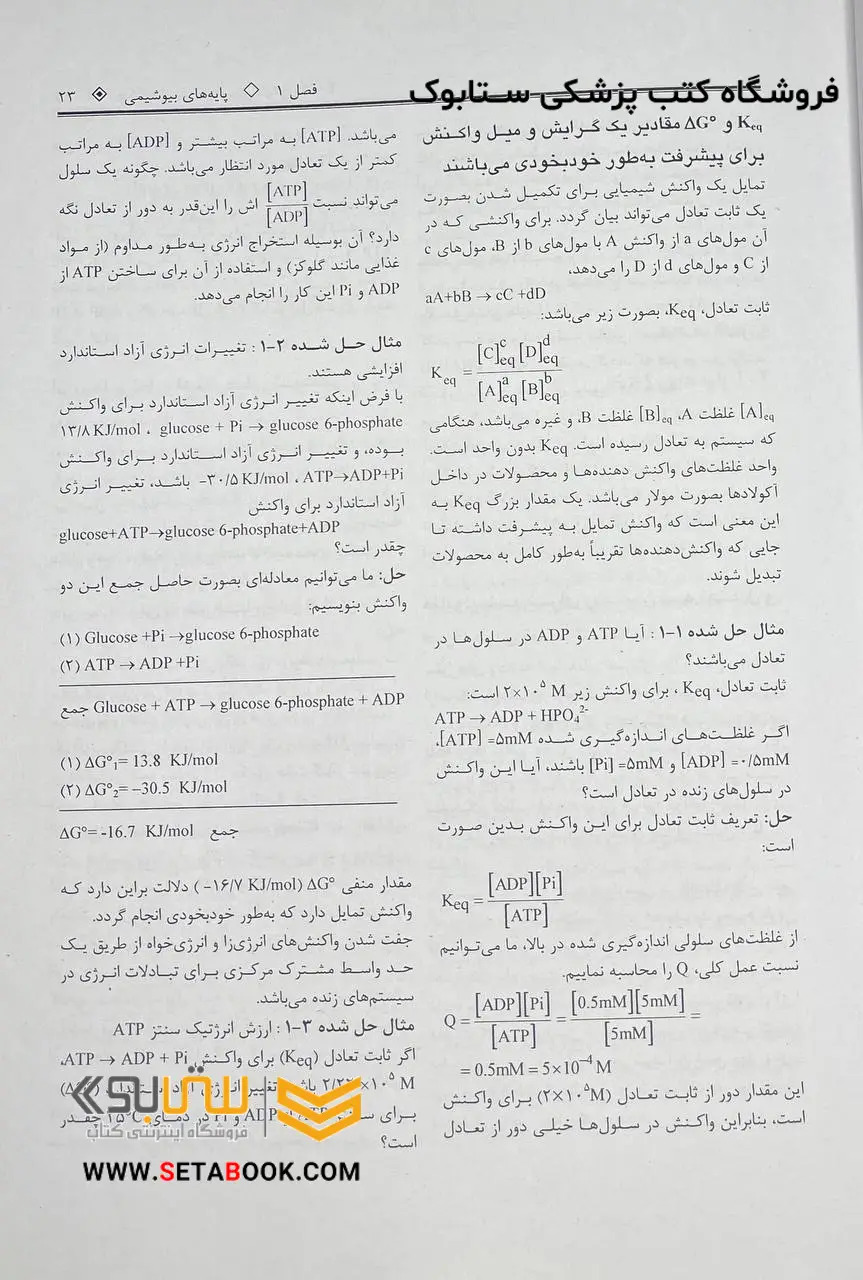 فروشگاه کتب پزشکی ستابوک
فصل ۱ ◇ پایه‌های بیوشیمی ۲۳
Keq و ΔG° مقادیر یک گرایش و میل واکنش
برای پیشرفت به‌طور خودبخودی می‌باشند
تمایل یک واکنش شیمیایی برای تکمیل شدن بصورت
یک ثابت تعادل می‌تواند بیان گردد. برای واکنشی که در
آن مول‌های a از واکنش A با مول‌های b از B، مول‌های c
از C و مول‌های d از D را می‌دهد،
aA+bB → cC +dD
ثابت تعادل، Keq، بصورت زیر می‌باشد:
Keq = [C]^c eq [D]^d eq / [A]^a eq [B]^b eq
[A]eq غلظت A، [B]eq غلظت B، و غیره می‌باشد، هنگامی
که سیستم به تعادل رسیده است. Keq بدون واحد است.
واحد غلظت‌های واکنش دهنده‌ها و محصولات در داخل
آکولادها بصورت مولار می‌باشد. یک مقدار بزرگ Keq به
این معنی است که واکنش تمایل به پیشرفت داشته تا
جایی که واکنش‌دهنده‌ها تقریباً به‌طور کامل به محصولات
تبدیل شوند.
مثال حل شده ۱-۱ : آیا ATP و ADP در سلول‌ها در
تعادل می‌باشند؟
ثابت تعادل، Keq ، برای واکنش زیر ۲×۱۰⁵ M است:
ATP → ADP + HPO₄²⁻
اگر غلظت‌های اندازه‌گیری شده [ATP] =۵mM،
[ADP] =۰/۵mM و [Pi] =۵mM باشند، آیا این واکنش
در سلول‌های زنده در تعادل است؟
حل: تعریف ثابت تعادل برای این واکنش بدین صورت
است:
Keq = [ADP][Pi] / [ATP]
از غلظت‌های سلولی اندازه‌گیری شده در بالا، ما می‌توانیم
نسبت عمل کلی، Q را محاسبه نماییم.
Q = [ADP][Pi] / [ATP] = [0.5mM][5mM] / [5mM] =
= 0.5mM = 5×10⁻⁴ M
این مقدار دور از ثابت تعادل (۲×۱۰⁵M) برای واکنش
است، بنابراین واکنش در سلول‌ها خیلی دور از تعادل
می‌باشد. [ATP] به مراتب بیشتر و [ADP] به مراتب
کمتر از یک تعادل مورد انتظار می‌باشد. چگونه یک سلول
می‌تواند نسبت [ATP] / [ADP] اش را این‌قدر به دور از تعادل نگه
دارد؟ آن بوسیله استخراج انرژی به‌طور مداوم (از مواد
غذایی مانند گلوکز) و استفاده از آن برای ساختن ATP از
ADP و Pi این کار را انجام می‌دهد.
مثال حل شده ۲-۱ : تغییرات انرژی آزاد استاندارد
افزایشی هستند.
با فرض اینکه تغییر انرژی آزاد استاندارد برای واکنش
glucose + Pi → glucose 6-phosphate ، ۱۳/۸ KJ/mol
بوده، و تغییر انرژی آزاد استاندارد برای واکنش
ATP→ADP+Pi ، -۳۰/۵ KJ/mol باشد، تغییر انرژی
آزاد استاندارد برای واکنش
glucose+ATP→glucose 6-phosphate+ADP
چقدر است؟
حل: ما می‌توانیم معادله‌ای بصورت حاصل جمع این دو
واکنش بنویسیم:
(۱) Glucose +Pi →glucose 6-phosphate
(۲) ATP → ADP +Pi
جمع Glucose + ATP → glucose 6-phosphate + ADP
(۱) ΔG°₁= 13.8 KJ/mol
(۲) ΔG°₂= –30.5 KJ/mol
ΔG°= -16.7 KJ/mol جمع
مقدار منفی ΔG° (-۱۶/۷ KJ/mol) دلالت براین دارد که
واکنش تمایل دارد که به‌طور خودبخودی انجام گردد.
جفت شدن واکنش‌های انرژی‌زا و انرژی‌خواه از طریق یک
حد واسط مشترک مرکزی برای تبادلات انرژی در
سیستم‌های زنده می‌باشد.
مثال حل شده ۳-۱ : ارزش انرژتیک سنتز ATP
اگر ثابت تعادل (Keq) برای واکنش ATP → ADP + Pi،
۲/۲۲×۱۰⁵ M باشد تغییر انرژی آزاد استاندارد
برای ADP و Pi در دمای ۲۵°C چقدر
است؟
ستابوک
فروشگاه اینترنتی کتاب
WWW.SETABOOK.COM